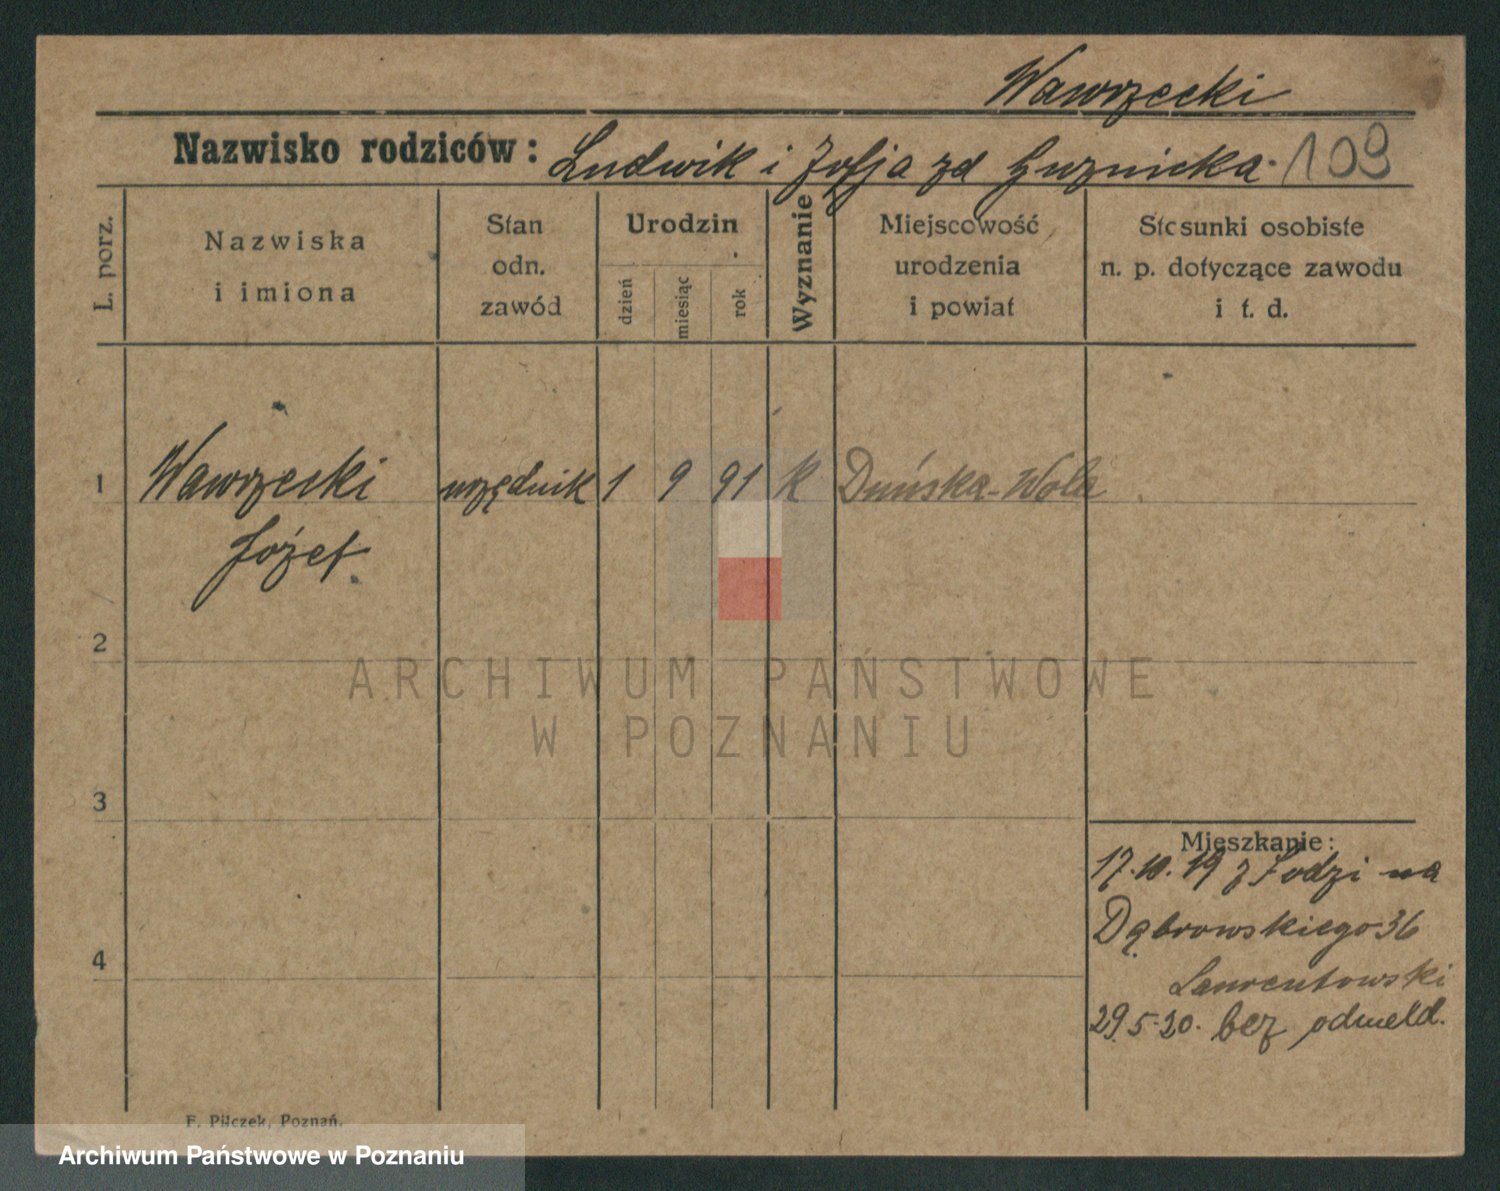 Wawrzecki
Nazwisko rodziców: Ludwik i Zofja zd Guznicka. 109
L. porz.
Nazwiska i imiona
Stan odn. zawód
Urodzin
dzień
miesiąc
rok
Wyznanie
Miejscowość urodzenia i powiat
Stosunki osobiste n. p. dotyczące zawodu i t. d.
1 Wawrzecki urzędnik 1 9 91 K Duńska-Wola
Józef
2
ARCHIWUM PAŃSTWOWE
W POZNANIU
3
Mieszkanie:
17.10.19 z Łodzi na
Dąbrowskiego 36
4
Laurentowski
29.5.20. bez odmeld.
F. Pilczek, Poznań.
Archiwum Państwowe w Poznaniu